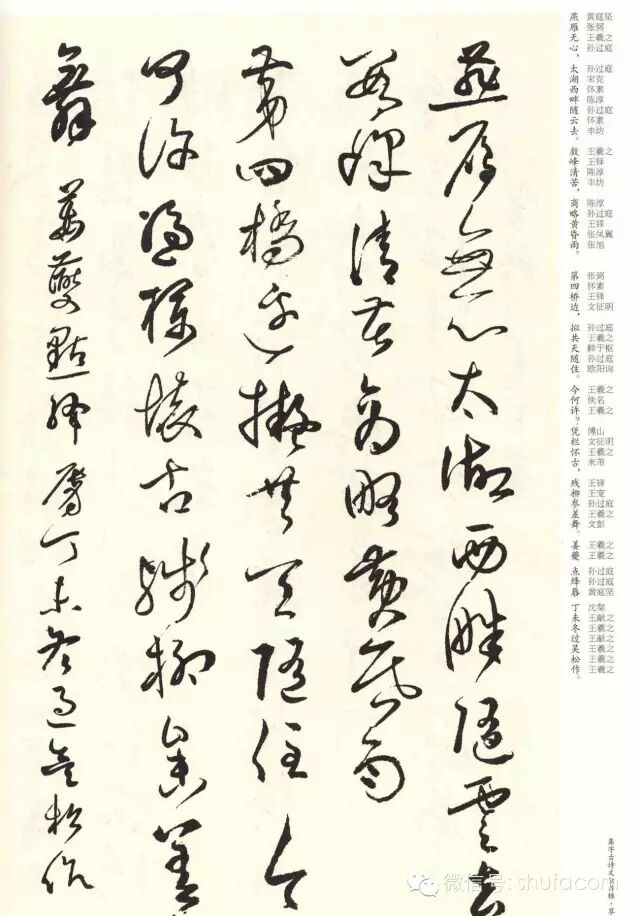 黄庭坚 张弼 王羲之 孙过庭
孙过庭 宋克 怀素 陈淳 孙过庭 怀素 丰坊
王羲之 王铎 陈淳 丰坊
陈淳 孙过庭 王铎 张凤翼 张旭
张弼 怀素 王铎 文征明
孙过庭 王羲之 鲜于枢 孙过庭 欧阳询
王羲之 佚名 王羲之
傅山 文征明 王羲之 米芾
王铎 王宠 孙过庭 王羲之 文彭
王羲之 王羲之
孙过庭 孙过庭 黄庭坚
沈粲 王献之 王羲之 王献之 王羲之 王羲之 王羲之
燕雁无心，太湖西畔随云去。数峰清苦，商略黄昏雨。第四桥边，拟共天随住。今何许？凭栏怀古，残柳参差舞。姜夔 点绛唇 丁未冬过吴松作。
集字古诗文
燕雁無心太湖西畔隨雲去
數峰清苦商略黃昏雨
第四橋邊擬共天隨住今
何許憑欄懷古殘柳參差
舞 姜夔點絳唇丁未冬過吴松作
微信号: shufacom